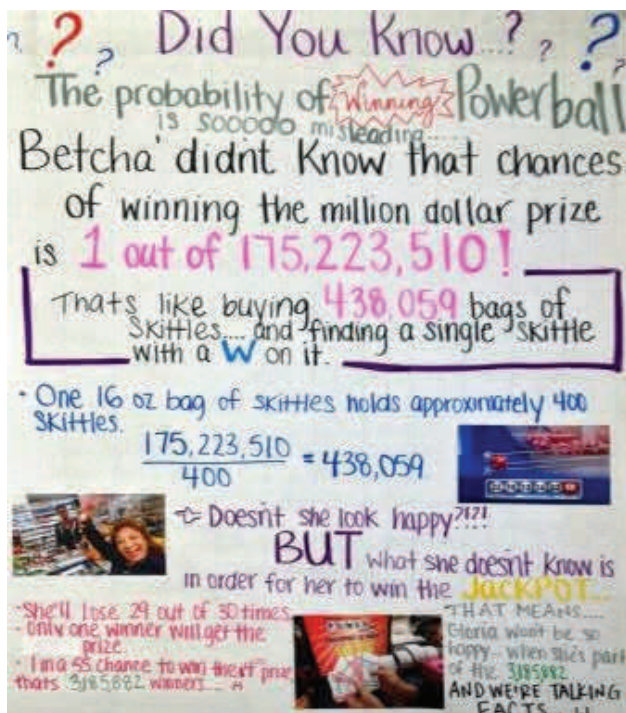 ? ? Did You Know...? ? ? ?
The probability of Winning Powerball
is sooooo misleading.....
Betcha' didnt Know that chances
of winning the million dollar prize
is 1 out of 175,223,510!
Thats like buying 438,059 bags of
Skittles.... and finding a single skittle
with a W on it.
· One 16 oz bag of skittles holds approximately 400
skittles.
175,223,510
400
= 438,059
Doesn't she look happy?!?!
BUT what she doesn't know is
in order for her to win the JACKPOT...
- She'll lose 29 out of 30 times
- only one winner will get the
prize.
• 1 in a 55 chance to win the prize
thats 3,185,882 winners....
THAT MEANS....
Gloria won't be so
happy... when she's part
of the 3,185,882
AND WE'RE TALKING
FACTS